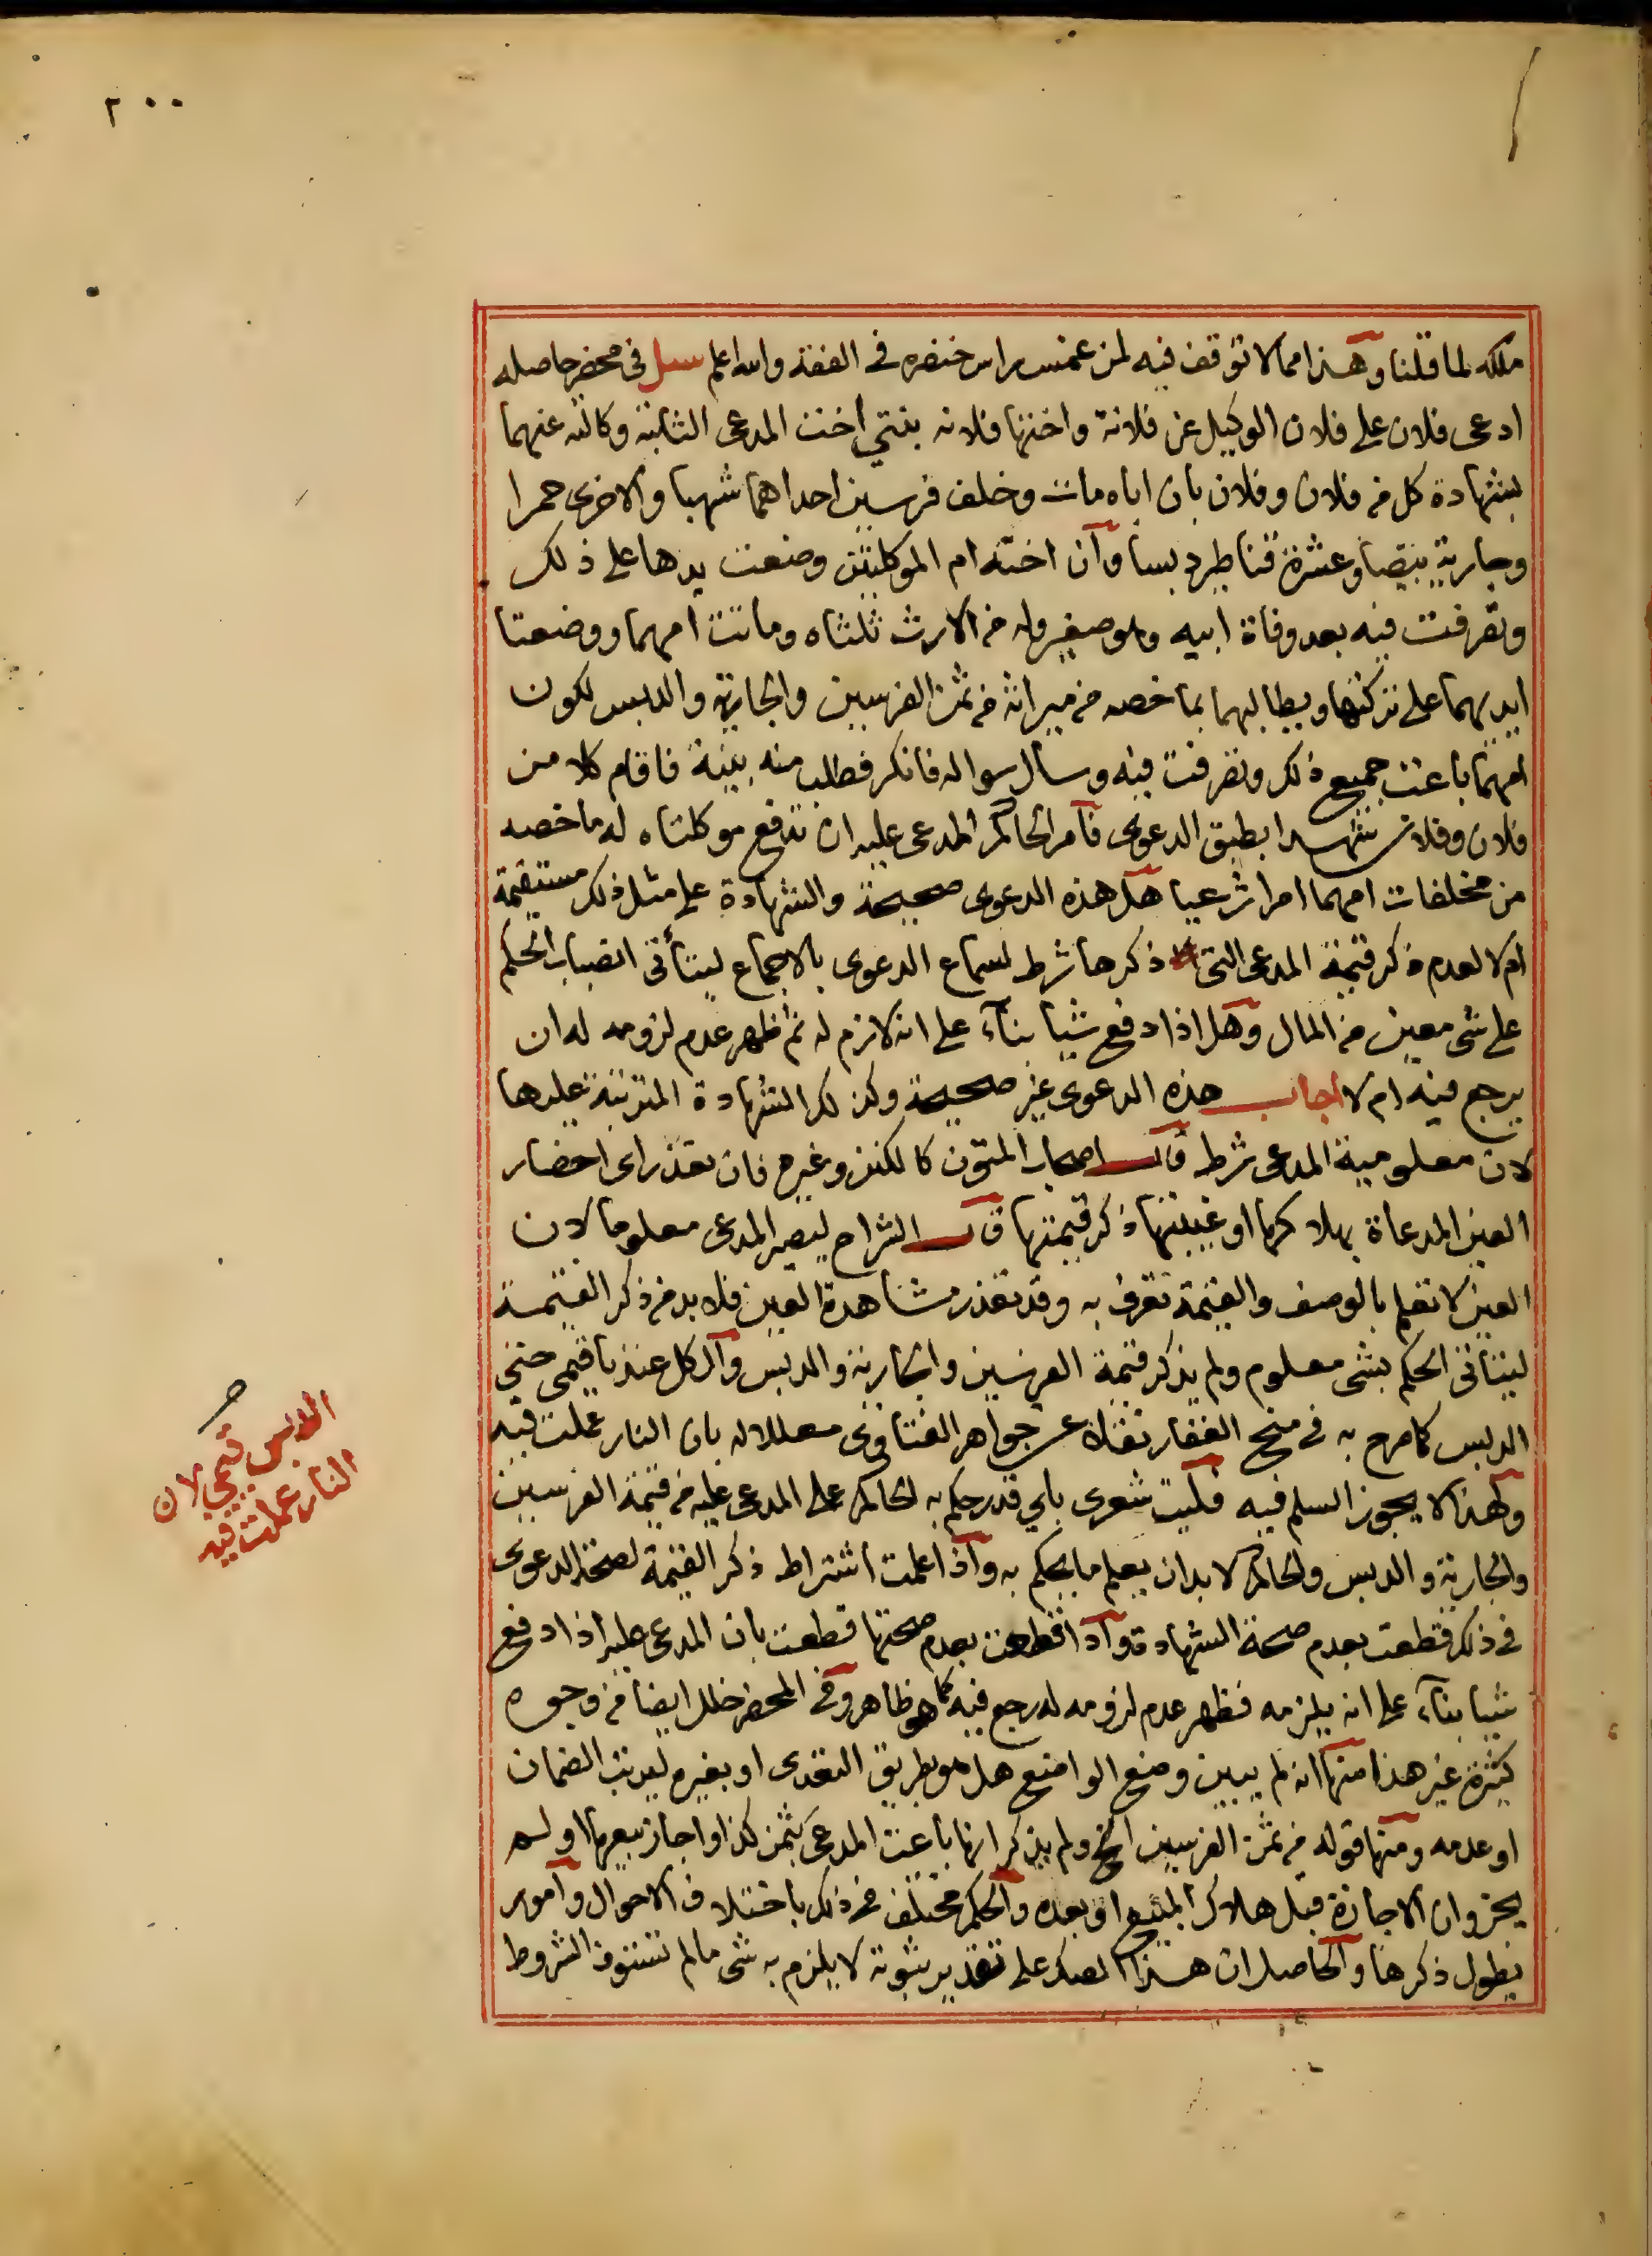 ٢٠٠
ملكه لما قلنا وهذا مما لا توقف فيه لمن غمس راس خنصره في الفقه والله اعلم سئل في محضر حاصله
ادعى فلان على فلان الوكيل عن فلانة واختها فلانه بنتي اخت المدعي الثابتة وكالته عنهما
بشهادة كل من فلان وفلان بان اباه مات وخلف فرسين احداهما شهبا والاخرى حمرا
وجارية بيضا وعشرة قناطير دبسا وان اخته ام الموكلتين وضعت يدها على ذلك
وتصرفت فيه بعد وفاة ابيه وهو صغير وله من الارث ثلثاه وماتت امهما ووضعتا
ايديهما على تركتها ويطالبهما بما خصه من ميراثه من ثمن الفرسين والجارية والدبس لكون
امهما باعت جميع ذلك وتصرفت فيه وسال سواله فانكر فطلب منه بينة فاقام كلا من
فلان وفلان شهدا بطبق الدعوى فامر الحاكم المدعى عليه ان تدفع موكلتاه له ما خصه
من مخلفات امهما امرا شرعيا هل هذه الدعوى صحيحة والشهادة على مثل ذلك مستقيمة
ام لا لعدم ذكر قيمة المدعى التي ذكرها شرط لسماع الدعوى بالاجماع ليتأتى انصباب الحكم
على شي معين من المال وهل اذا دفع شيا بناء على انه لازم له ثم ظهر عدم لزومه له ان
يرجع فيه ام لا اجاب هذه الدعوى غير صحيحة وكذلك الشهادة المترتبة عليها
لان معلومية المدعى شرط قال اصحاب المتون كالكنز وغيره فان تعذر اى احضار
العين المدعاة بهلاكها او غيبتها ذكر قيمتها قال الشراح ليصير المدعى معلوما لان
العين لا تعلم بالوصف والقيمة تعرف به وقد تعذر مشاهدة العين فلا بد من ذكر القيمة
ليتأتى الحكم بشي معلوم ولم يذكر قيمة الفرسين والجارية والدبس والكل عندنا قيمي حتى
الدبس كما صرح به في منح الغفار نقلا عن جواهر الفتاوى معللا له بان النار عملت فيه
ولهذا لا يجوز السلم فيه فليت شعري باي قدر حكم به الحاكم على المدعى عليه من قيمة الفرسين
والجارية والدبس والحاكم لا بد ان يعلم ما يحكم به واذا علمت اشتراط ذكر القيمة لصحة الدعوى
في ذلك قطعت بعدم صحة الشهادة واذا قطعت بعدم صحتها قطعت بان المدعى عليه اذا دفع
شيا بناء على انه يلزمه فظهر عدم لزومه له رجع فيه كما هو ظاهر وفي المحضر خلل ايضا من وجوه
كثيرة غير هذا منها انه لم يبين وضع الواضع هل هو بطريق التعدي او بغيره ليترتب الضمان
او عدمه ومنها قوله من ثمن الفرسين الخ ولم يذكر انها باعت المدعى بثمن كذا واجاز بيعها او لم
يجز وان الاجازة قبل هلاك المبيع او بعده والحكم مختلف في ذلك باختلاف الاحوال وامور
يطول ذكرها والحاصل ان هذا الصك على تقدير ثبوته لا يلزم به شي ما لم تستوف الشروط
الدبس قيمي لان
النار عملت فيه